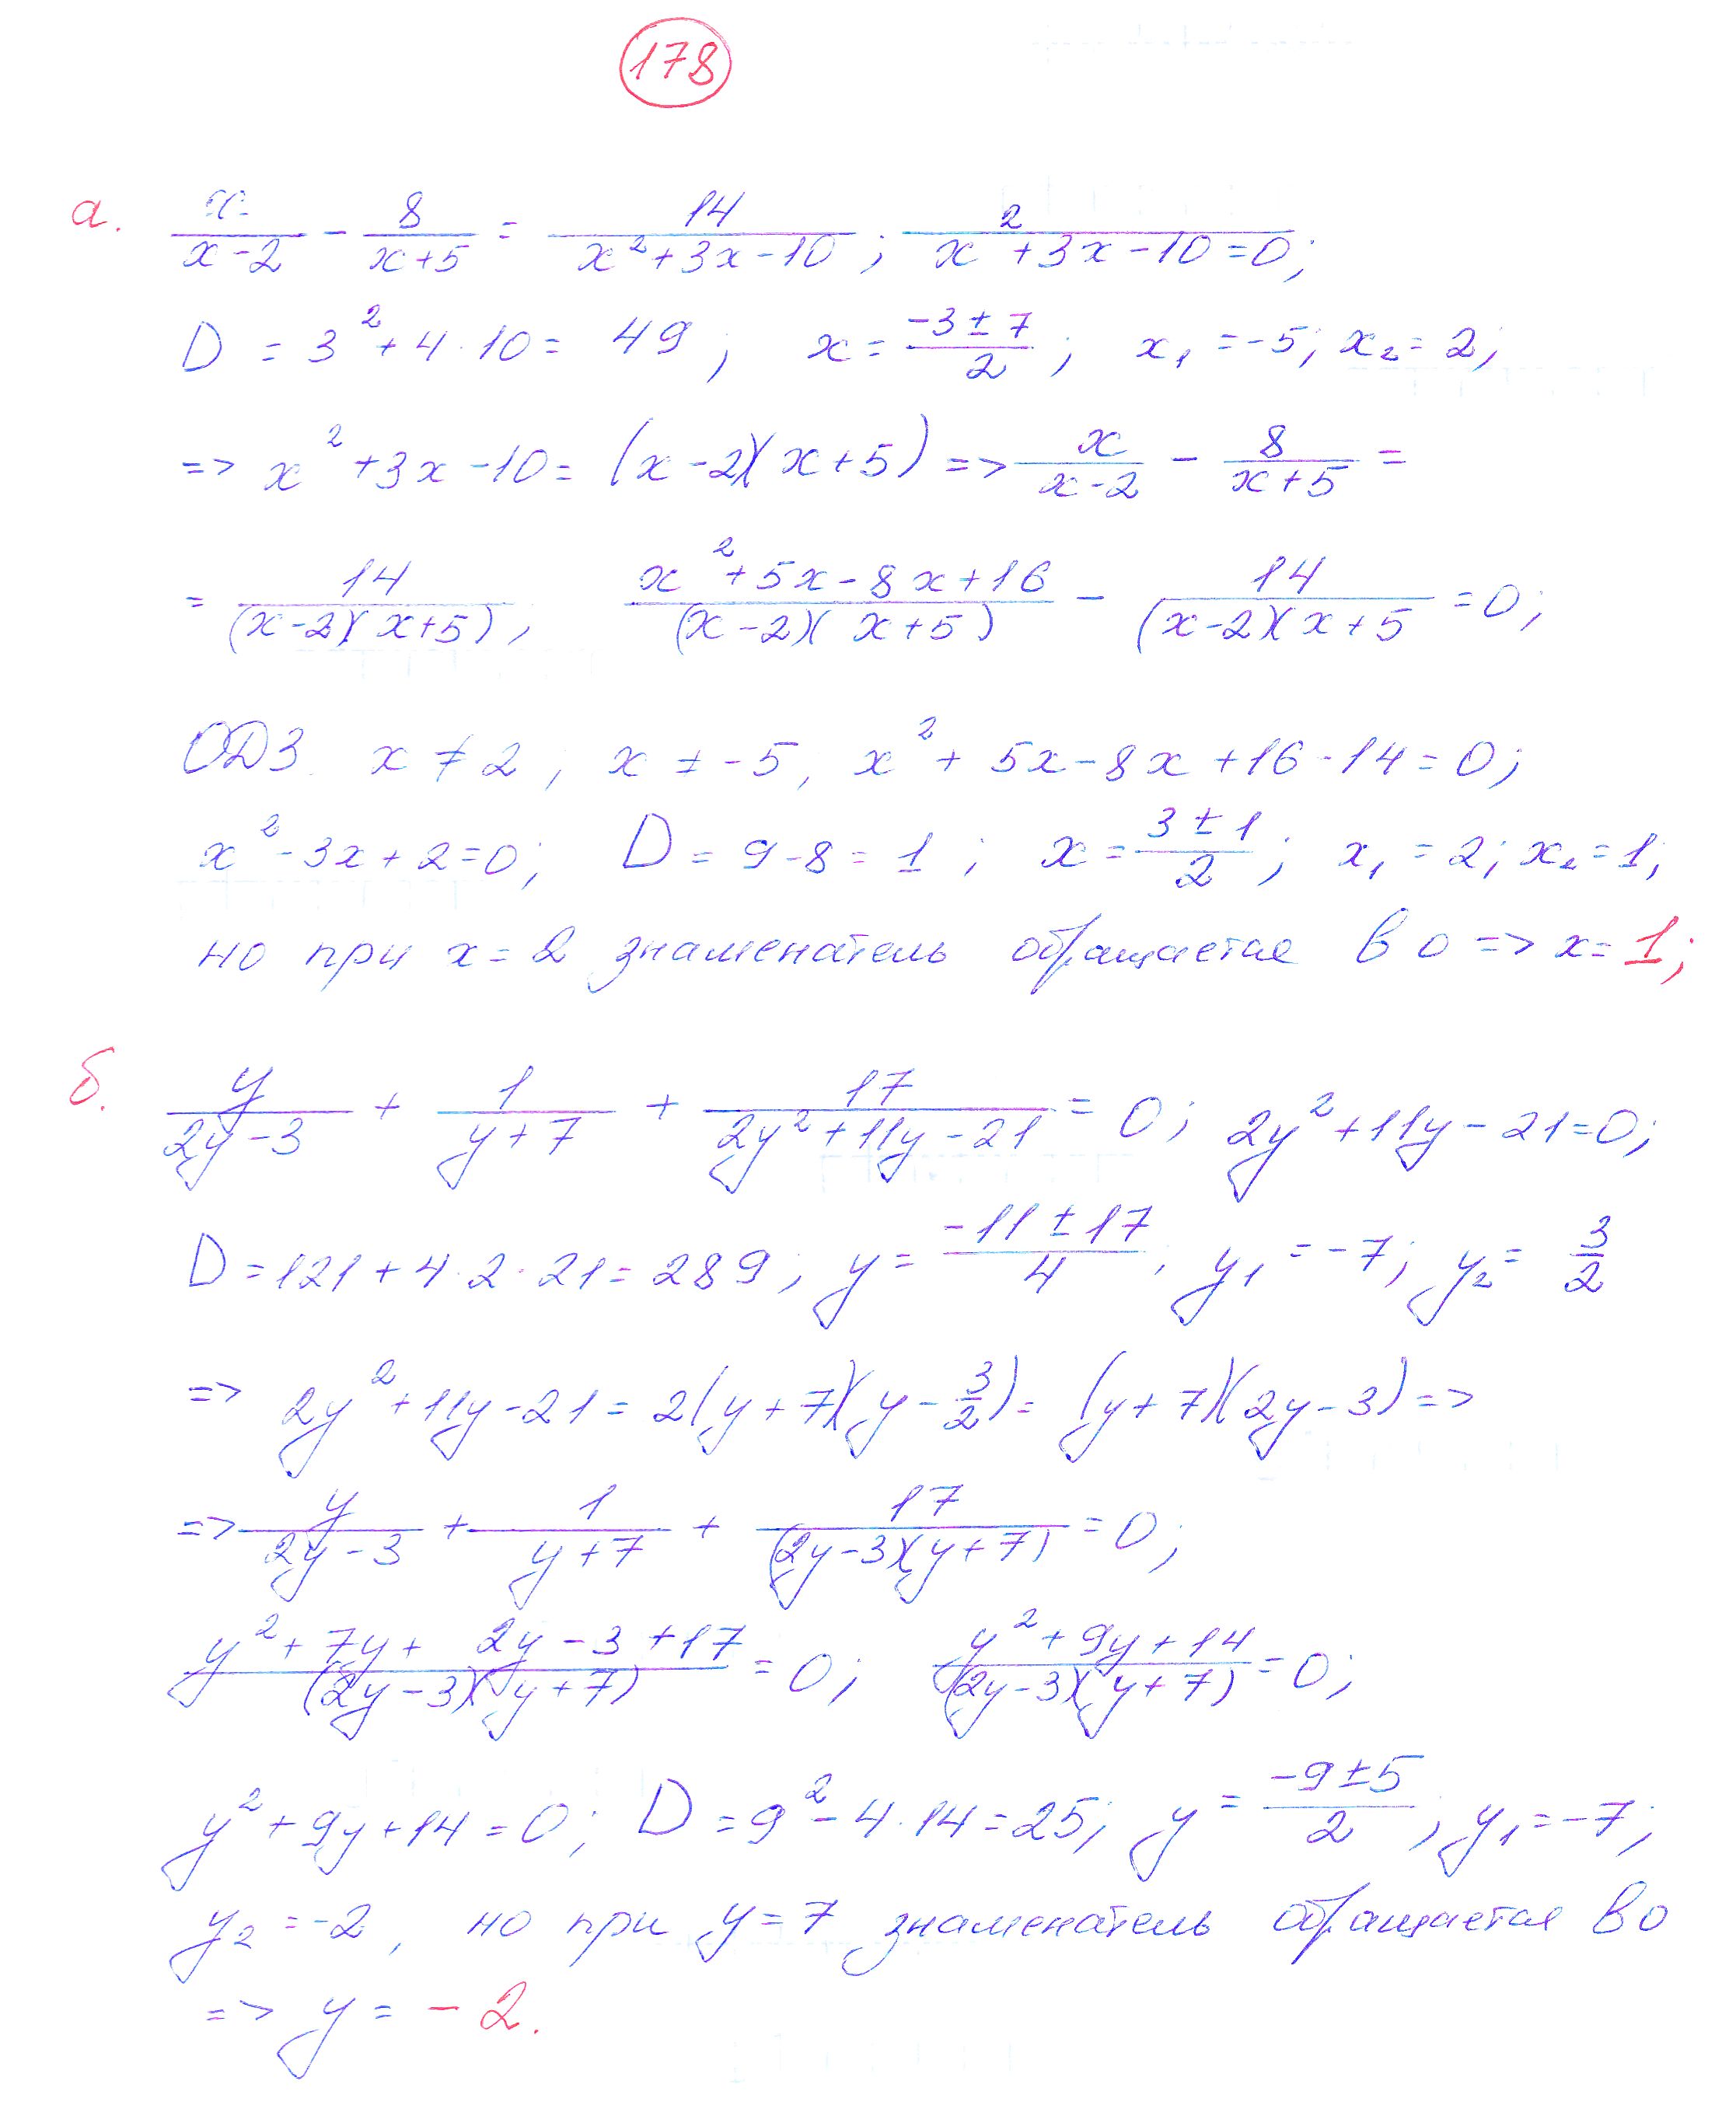 178
а. x/(x-2) - 8/(x+5) = 14/(x²+3x-10); x²+3x-10=0;
D = 3²+4·10= 49; x = (-3±7)/2; x₁ =-5; x₂= 2;
=> x²+3x-10= (x-2)(x+5) => x/(x-2) - 8/(x+5) =
= 14/((x-2)(x+5)), (x²+5x-8x+16)/((x-2)(x+5)) - 14/((x-2)(x+5 =0;
ОДЗ. x ≠ 2, x ≠ -5, x²+ 5x-8x+16-14=0;
x²-3x+2=0; D = 9-8=1; x=(3±1)/2; x₁ =2; x₂=1;
но при x=2 знаменатель обращается в 0 => x=1;
б. y/(2y-3) + 1/(y+7) + 17/(2y²+11y-21) = 0; 2y²+11y-21=0;
D=121+4·2·21=289; y= (-11±17)/4; y₁ =-7; y₂= 3/2
=> 2y²+11y-21= 2(y+7)(y-3/2)= (y+7)(2y-3)=>
=> y/(2y-3) + 1/(y+7) + 17/((2y-3)(y+7)) =0;
(y²+7y+ 2y-3+17)/((2y-3)(y+7)) =0; (y²+9y+14)/((2y-3)(y+7)) =0;
y²+9y+14=0; D=9²-4·14=25; y= (-9±5)/2, y₁=-7;
y₂ =-2, но при y=7 знаменатель обращается в 0
=> y= -2.